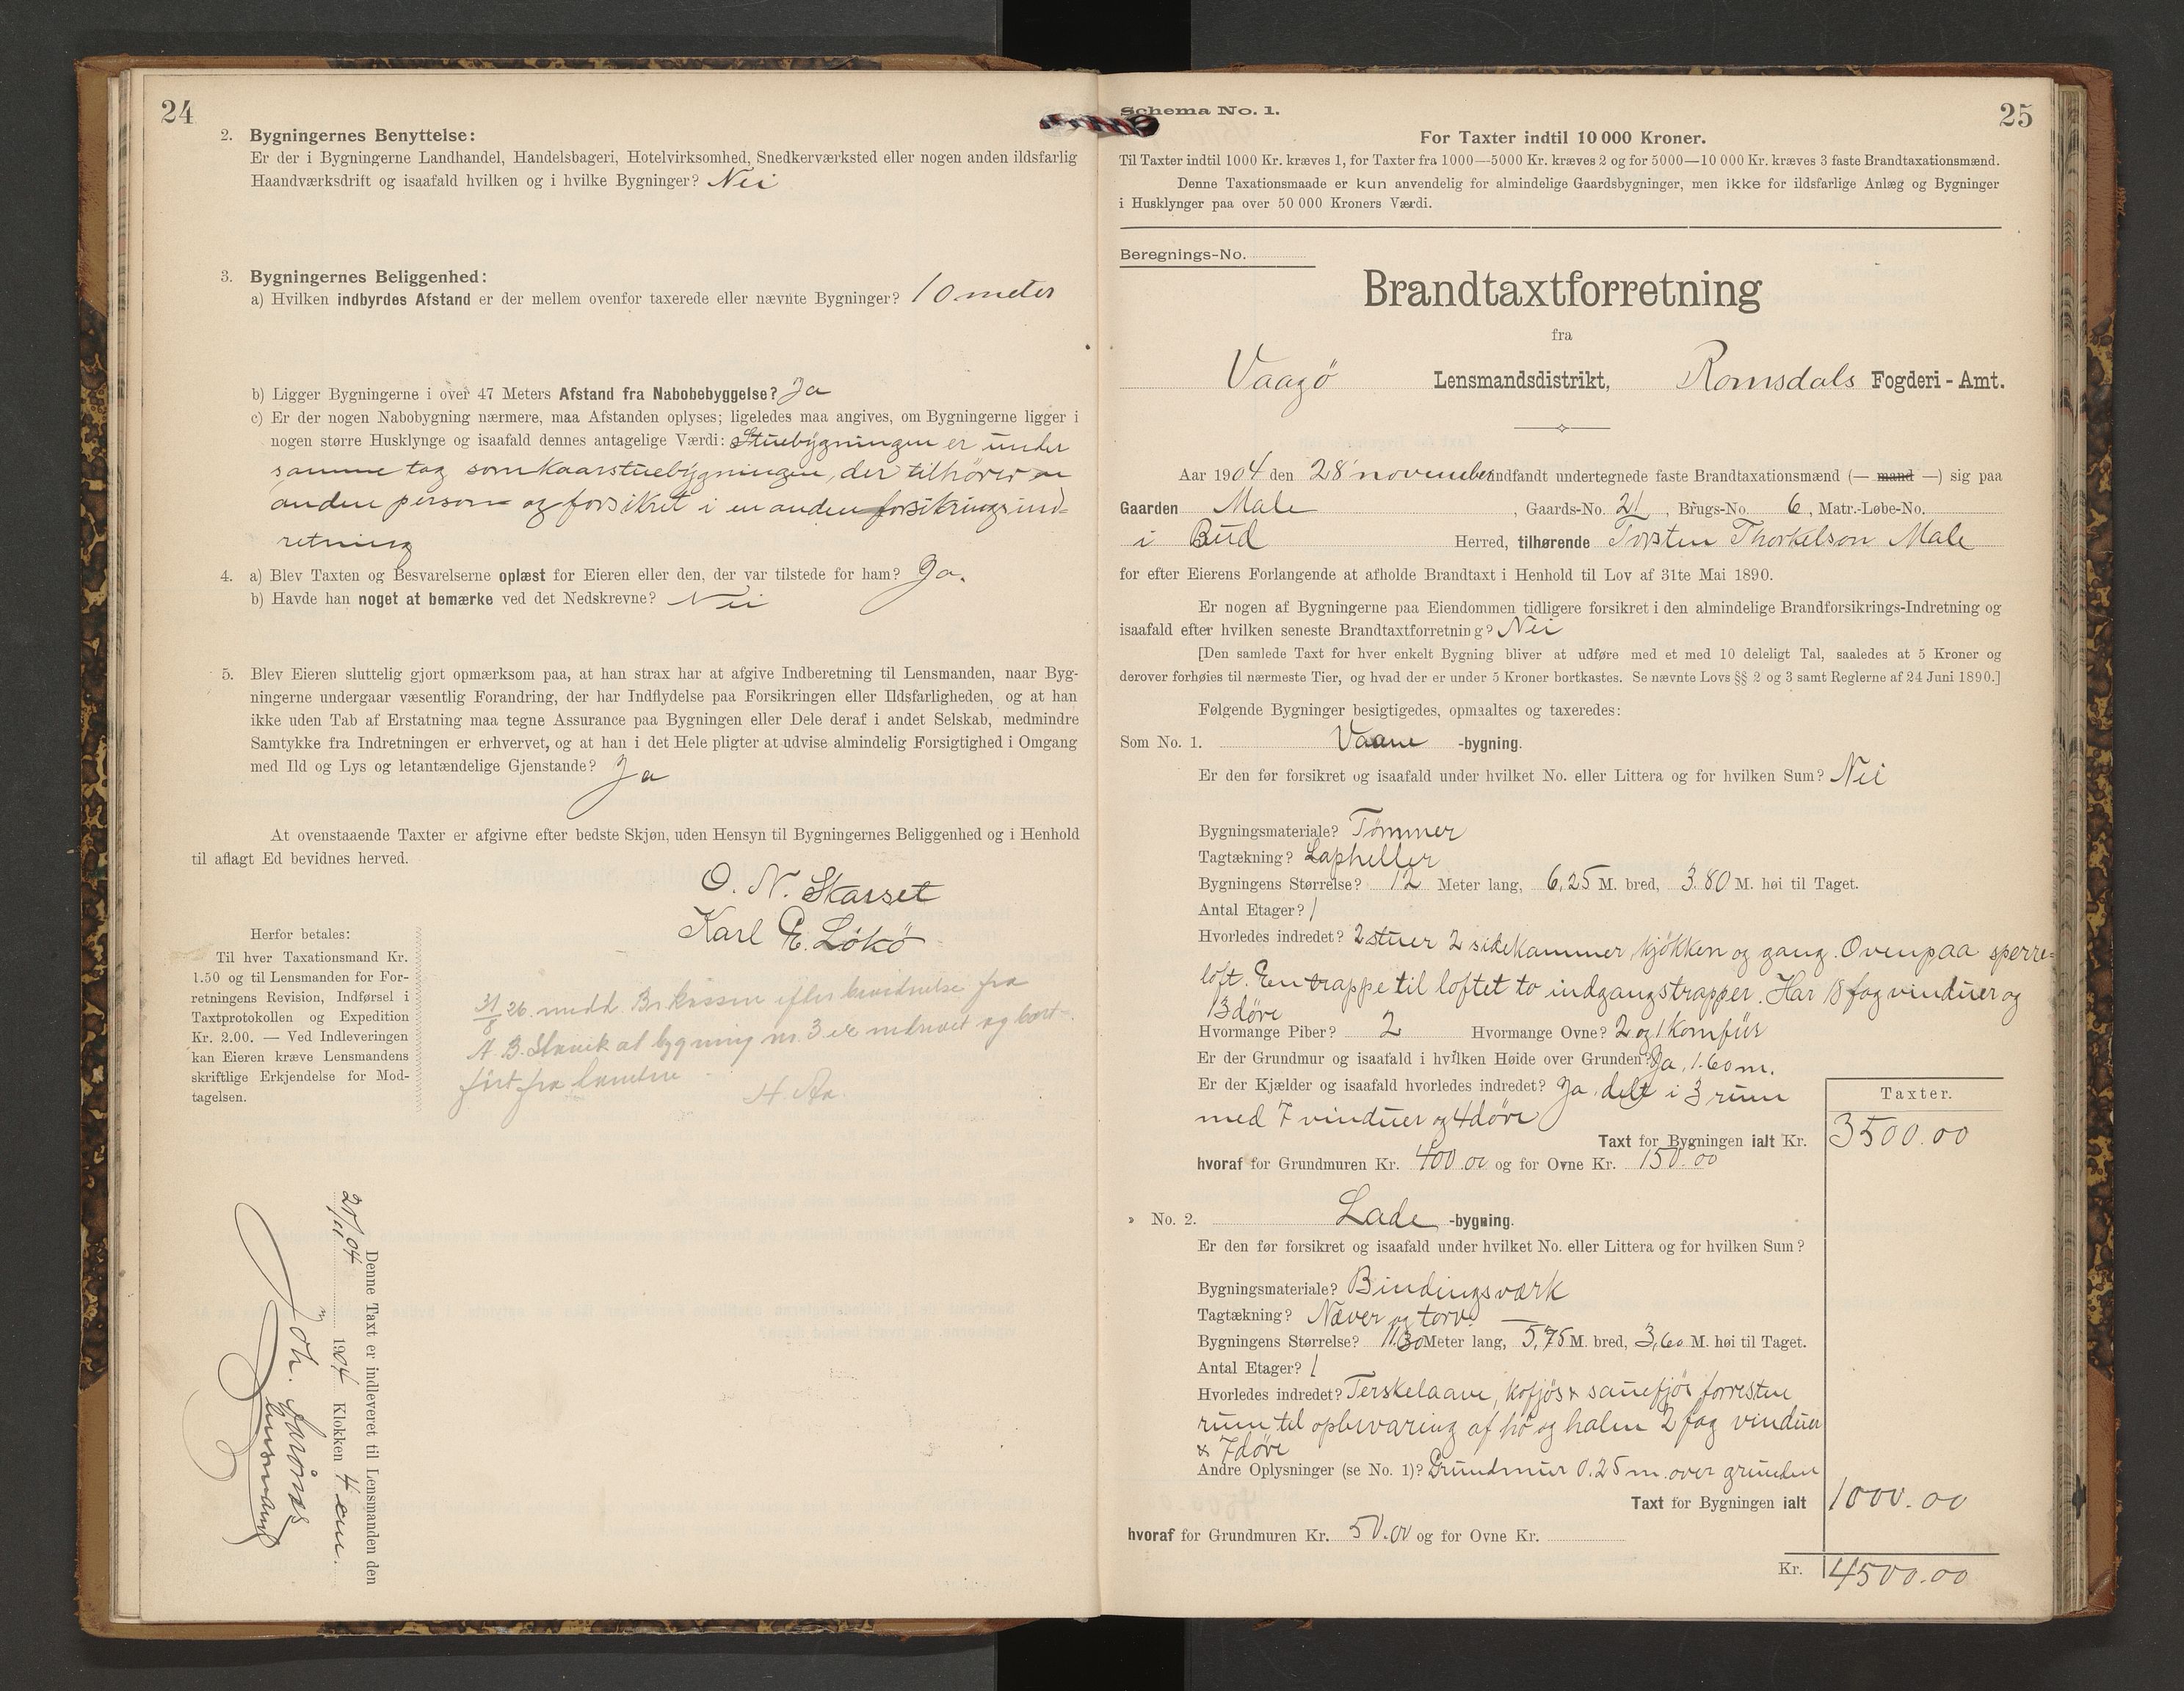 24
2. Bygningernes Benyttelse:
Er der i Bygningerne Landhandel, Handelsbageri, Hotelvirksomhed, Snedkerværksted eller nogen anden ildsfarlig
Haandværksdrift og isaafald hvilken og i hvilke Bygninger? Nei
3. Bygningernes Beliggenhed:
a) Hvilken indbyrdes Afstand er der mellem ovenfor taxerede eller nævnte Bygninger? 10 meter
b) Ligger Bygningerne i over 47 Meters Afstand fra Nabobebyggelse? Ja
c) Er der nogen Nabobygning nærmere, maa Afstanden oplyses; ligeledes maa angives, om Bygningerne ligger i
nogen større Husklynge og isaafald dennes antagelige Værdi: Stuebygningen er under
samme tag som kaarstuebygningen, der tilhører en
anden person og forsikret i en anden forsikringsind=
retning
4. a) Blev Taxten og Besvarelserne oplæst for Eieren eller den, der var tilstede for ham? Ja.
b) Havde han noget at bemærke ved det Nedskrevne? Nei
5. Blev Eieren sluttelig gjort opmærksom paa, at han strax har at afgive Indberetning til Lensmanden, naar Byg-
ningerne undergaar væsentlig Forandring, der har Indflydelse paa Forsikringen eller Ildsfarligheden, og at han
ikke uden Tab af Erstatning maa tegne Assurance paa Bygningen eller Dele deraf i andet Selskab, medmindre
Samtykke fra Indretningen er erhvervet, og at han i det Hele pligter at udvise almindelig Forsigtighed i Omgang
med Ild og Lys og letantændelige Gjenstande? Ja
At ovenstaaende Taxter er afgivne efter bedste Skjøn, uden Hensyn til Bygningernes Beliggenhed og i Henhold
til aflagt Ed bevidnes herved.
O. N. Skarset
Karl E. Lökö
Herfor betales:
Til hver Taxationsmand Kr.
1.50 og til Lensmanden for For-
retningens Revision, Indførsel i
Taxtprotokollen og Expedition
Kr. 2.00. — Ved Indleveringen
kan Eieren kræve Lensmandens
skriftlige Erkjendelse for Mod-
tagelsen.
31/8 26. medd Br.kassen efter bevidnelse fra
A. B. Stavik at bygning nr. 3 er nedrevet og bort-
ført fra
H. Aa.
Denne Taxt er indleveret til Lensmanden den
1904 Klokken 4 em.
Joh.
Lensmand
25
Schema No. 1.
For Taxter indtil 10 000 Kroner.
Til Taxter indtil 1000 Kr. kræves 1, for Taxter fra 1000—5000 Kr. kræves 2 og for 5000—10 000 Kr. kræves 3 faste Brandtaxationsmænd.
Denne Taxationsmaade er kun anvendelig for almindelige Gaardsbygninger, men ikke for ildsfarlige Anlæg og Bygninger
i Husklynger paa over 50 000 Kroners Værdi.
Beregnings-No.
Brandtaxtforretning
fra
Vaagö Lensmandsdistrikt, Romsdals Fogderi - Amt.
Aar 1904 den 28' november indfandt undertegnede faste Brandtaxationsmænd (— mand —) sig paa
Gaarden Male, Gaards-No. 21, Brugs-No. 6, Matr.-Løbe-No.
i Bud Herred, tilhørende Torsten Thorkelson Male
for efter Eierens Forlangende at afholde Brandtaxt i Henhold til Lov af 31te Mai 1890.
Er nogen af Bygningerne paa Eiendommen tidligere forsikret i den almindelige Brandforsikrings-Indretning og
isaafald efter hvilken seneste Brandtaxtforretning? Nei
[Den samlede Taxt for hver enkelt Bygning bliver at udføre med et med 10 deleligt Tal, saaledes at 5 Kroner og
derover forhøies til nærmeste Tier, og hvad der er under 5 Kroner bortkastes. Se nævnte Lovs §§ 2 og 3 samt Reglerne af 24 Juni 1890.]
Følgende Bygninger besigtigedes, opmaaltes og taxeredes:
Som No. 1. Vaane -bygning.
Er den før forsikret og isaafald under hvilket No. eller Littera og for hvilken Sum? Nei
Bygningsmateriale? Tømmer
Tagtækning? Lapheller
Bygningens Størrelse? 12 Meter lang, 6,25 M. bred, 3.80 M. høi til Taget.
Antal Etager? 1
Hvorledes indredet? 2 stuer 2 sidekammer, kjökken og gang. Ovenpaa sperre=
loft. En trappe til loftet to indgangstrapper. Har 18 fag vinduer og
13 döre
Hvormange Piber? 2 Hvormange Ovne? 2 og 1 komfür
Er der Grundmur og isaafald i hvilken Høide over Grunden? Ja, 1.60 m.
Er der Kjælder og isaafald hvorledes indredet? Ja, delt i 3 rum
med 7 vinduer og 4 döre
Taxter.
Taxt for Bygningen ialt Kr. 3500.00
hvoraf for Grundmuren Kr. 400.00 og for Ovne Kr. 150.00
» No. 2. Lade -bygning.
Er den før forsikret og isaafald under hvilket No. eller Littera og for hvilken Sum?
Bygningsmateriale? Bindingsværk
Tagtækning? Næver og torv
Bygningens Størrelse? 11.30 Meter lang, 5,75 M. bred, 3,60 M. høi til Taget.
Antal Etager? 1
Hvorledes indredet? Terskelaave, kofjös & sauefjös forresten
rum til opbevaring af hö og halm 2 fag vinduer
& 7 döre
Andre Oplysninger (se No. 1)? Grundmur 0.25 m. over grunden
Taxt for Bygningen ialt 1000.00
hvoraf for Grundmuren Kr. 50.00 og for Ovne Kr.
Kr. 4500.00